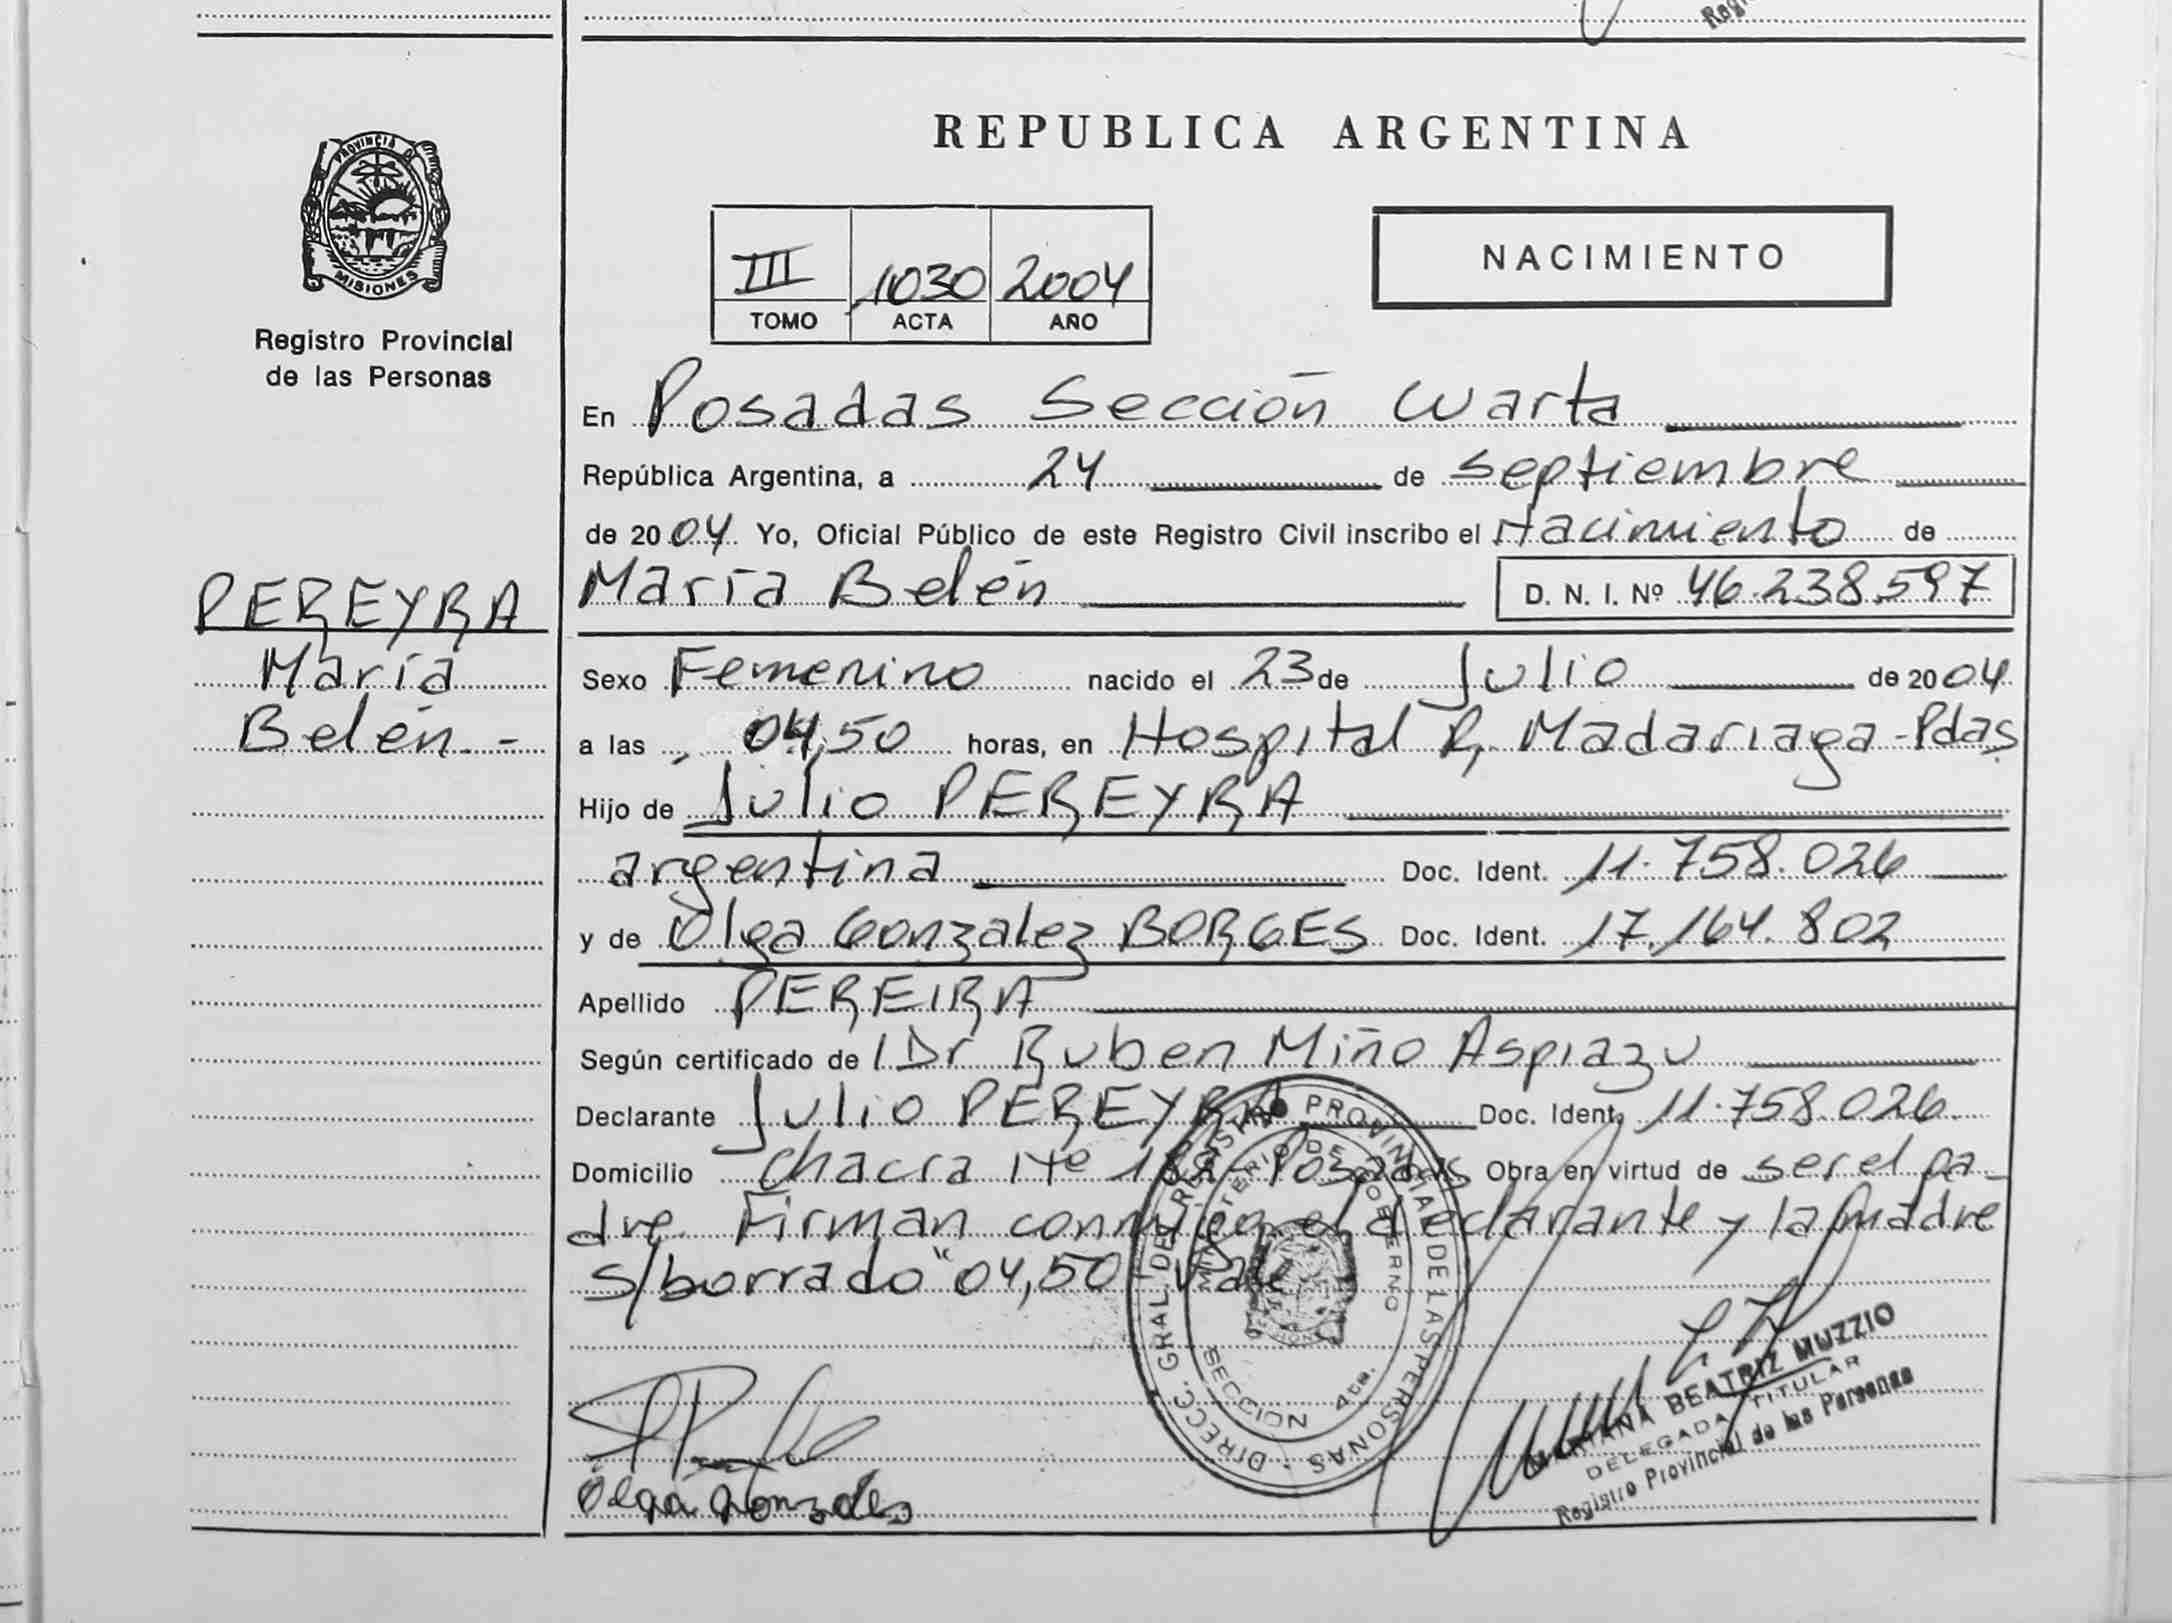 REPUBLICA ARGENTINA
PROVINCIA DE
MISIONES
Registro Provincial
de las Personas
NACIMIENTO
III 1030 2004
TOMO ACTA AÑO
En Posadas Sección Cuarta
República Argentina, a 24 de septiembre
de 2004 Yo, Oficial Público de este Registro Civil inscribo el Nacimiento de
María Belén D. N. I. Nº 46.238.597
PEREYRA
María
Belén.-
Sexo Femenino nacido el 23 de Julio de 2004
a las 04,50 horas, en Hospital R. Madariaga-Pdas
Hijo de Julio PEREYRA
argentina Doc. Ident. 11.758.026
y de Olga Gonzalez BORGES Doc. Ident. 17.164.802
Apellido PEREIRA
Según certificado de l Dr Ruben Miño Aspiazu
Declarante Julio PEREYRA Doc. Ident. 11.758.026
Domicilio Chacra Nº Posadas Obra en virtud de ser el pa-
dre. Firman conmigo el declarante y la madre
s/borrado "04,50" Vale
DIRECC. GRAL. DEL REGISTRO PROVINCIAL DE LAS PERSONAS
MINISTERIO DE GOBIERNO
SECCION 4ta.
Olga Gonzales
MARIANA BEATRIZ MUZZIO
DELEGADA TITULAR
Registro Provincial de las Personas